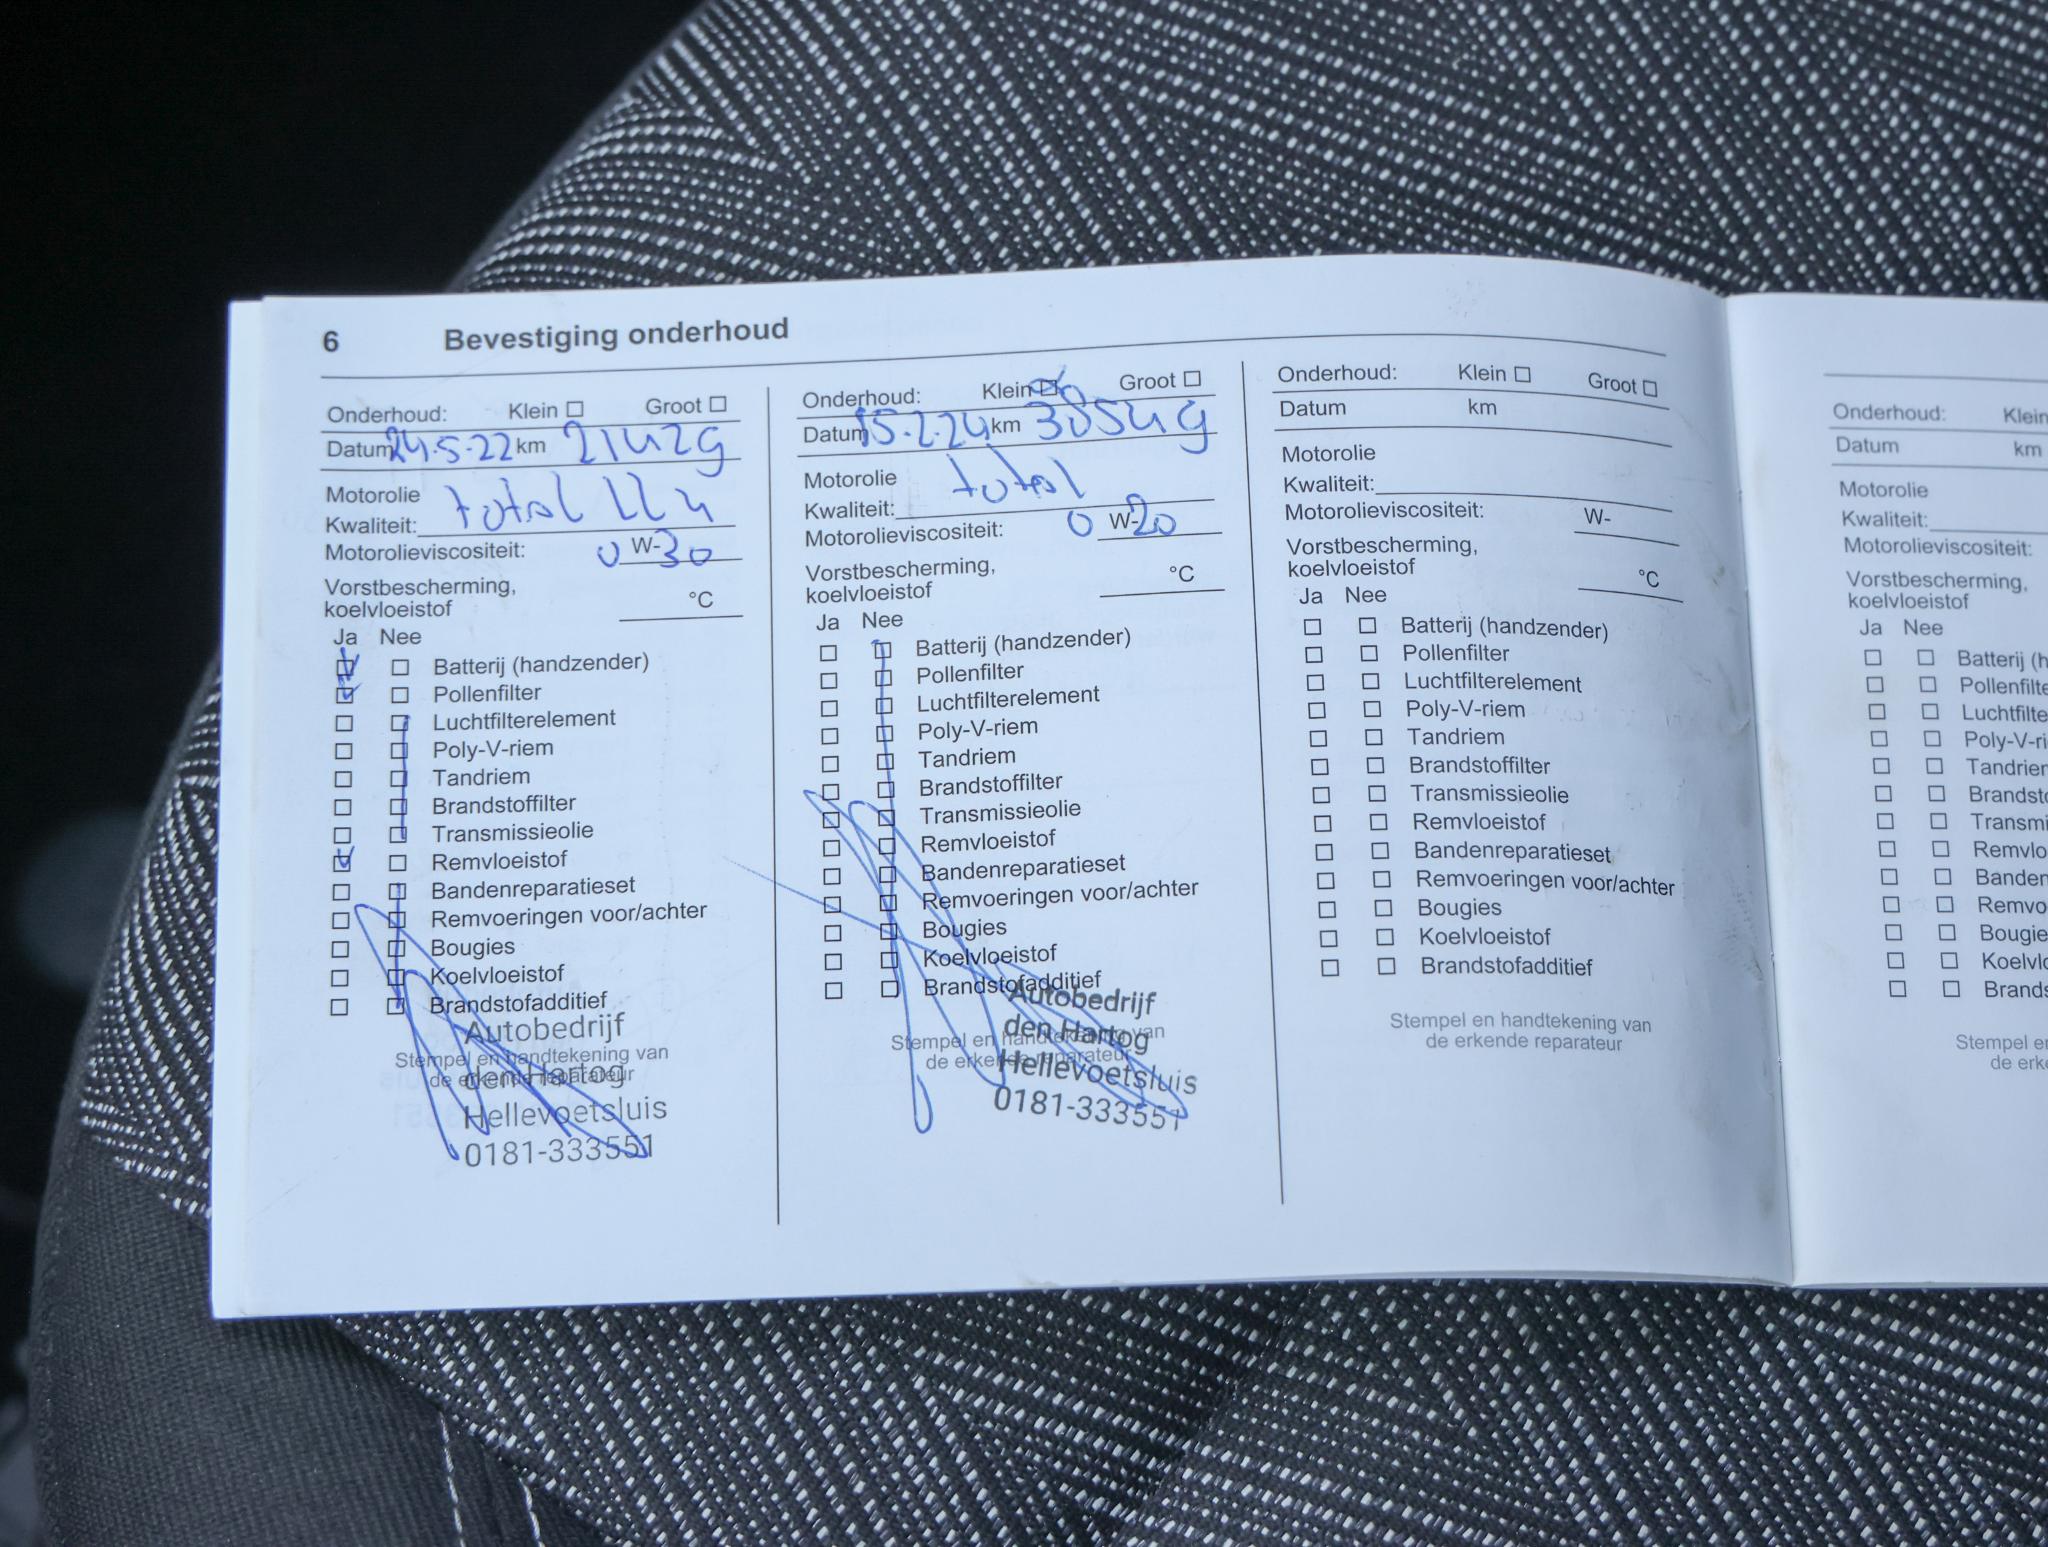 6 Bevestiging onderhoud
Onderhoud: Klein Groot
Datum 24-5-22 km 21429
Motorolie
Kwaliteit: total LL4
Motorolieviscositeit: 0 W-30
Vorstbescherming,
koelvloeistof °C
Ja Nee
Batterij (handzender)
Pollenfilter
Luchtfilterelement
Poly-V-riem
Tandriem
Brandstoffilter
Transmissieolie
Remvloeistof
Bandenreparatieset
Remvoeringen voor/achter
Bougies
Koelvloeistof
Brandstofadditief
Stempel en handtekening van
de erkende reparateur
Autobedrijf
den Hertog
Hellevoetsluis
0181-333551
Onderhoud: Klein Groot
Datum 15-2-24 km 38549
Motorolie
Kwaliteit: total
Motorolieviscositeit: 0 W-20
Vorstbescherming,
koelvloeistof °C
Ja Nee
Batterij (handzender)
Pollenfilter
Luchtfilterelement
Poly-V-riem
Tandriem
Brandstoffilter
Transmissieolie
Remvloeistof
Bandenreparatieset
Remvoeringen voor/achter
Bougies
Koelvloeistof
Brandstofadditief
Stempel en handtekening van
de erkende reparateur
Autobedrijf
den Hartog
Hellevoetsluis
0181-333551
Onderhoud: Klein Groot
Datum km
Motorolie
Kwaliteit:
Motorolieviscositeit: W-
Vorstbescherming,
koelvloeistof °C
Ja Nee
Batterij (handzender)
Pollenfilter
Luchtfilterelement
Poly-V-riem
Tandriem
Brandstoffilter
Transmissieolie
Remvloeistof
Bandenreparatieset
Remvoeringen voor/achter
Bougies
Koelvloeistof
Brandstofadditief
Stempel en handtekening van
de erkende reparateur
Onderhoud: Klein
Datum km
Motorolie
Kwaliteit:
Motorolieviscositeit:
Vorstbescherming,
koelvloeistof
Ja Nee
Batterij (h
Pollenfilte
Luchtfilte
Poly-V-ri
Tandrien
Brandsto
Transmi
Remvlo
Banden
Remvo
Bougie
Koelvlo
Brands
Stempel en
de erke